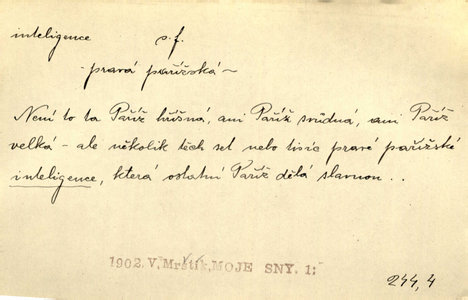 inteligence s.f.
- pravá pařížská -
Není to ta Paříž hříšná, ani Paříž svůdná, ani Paříž
velká - ale několik těch set nebo tisíc pravé pařížské
inteligence, která ostatní Paříž dělá slavnou . .
1902. V. Mrštík, MOJE SNY. 1:
244, 4